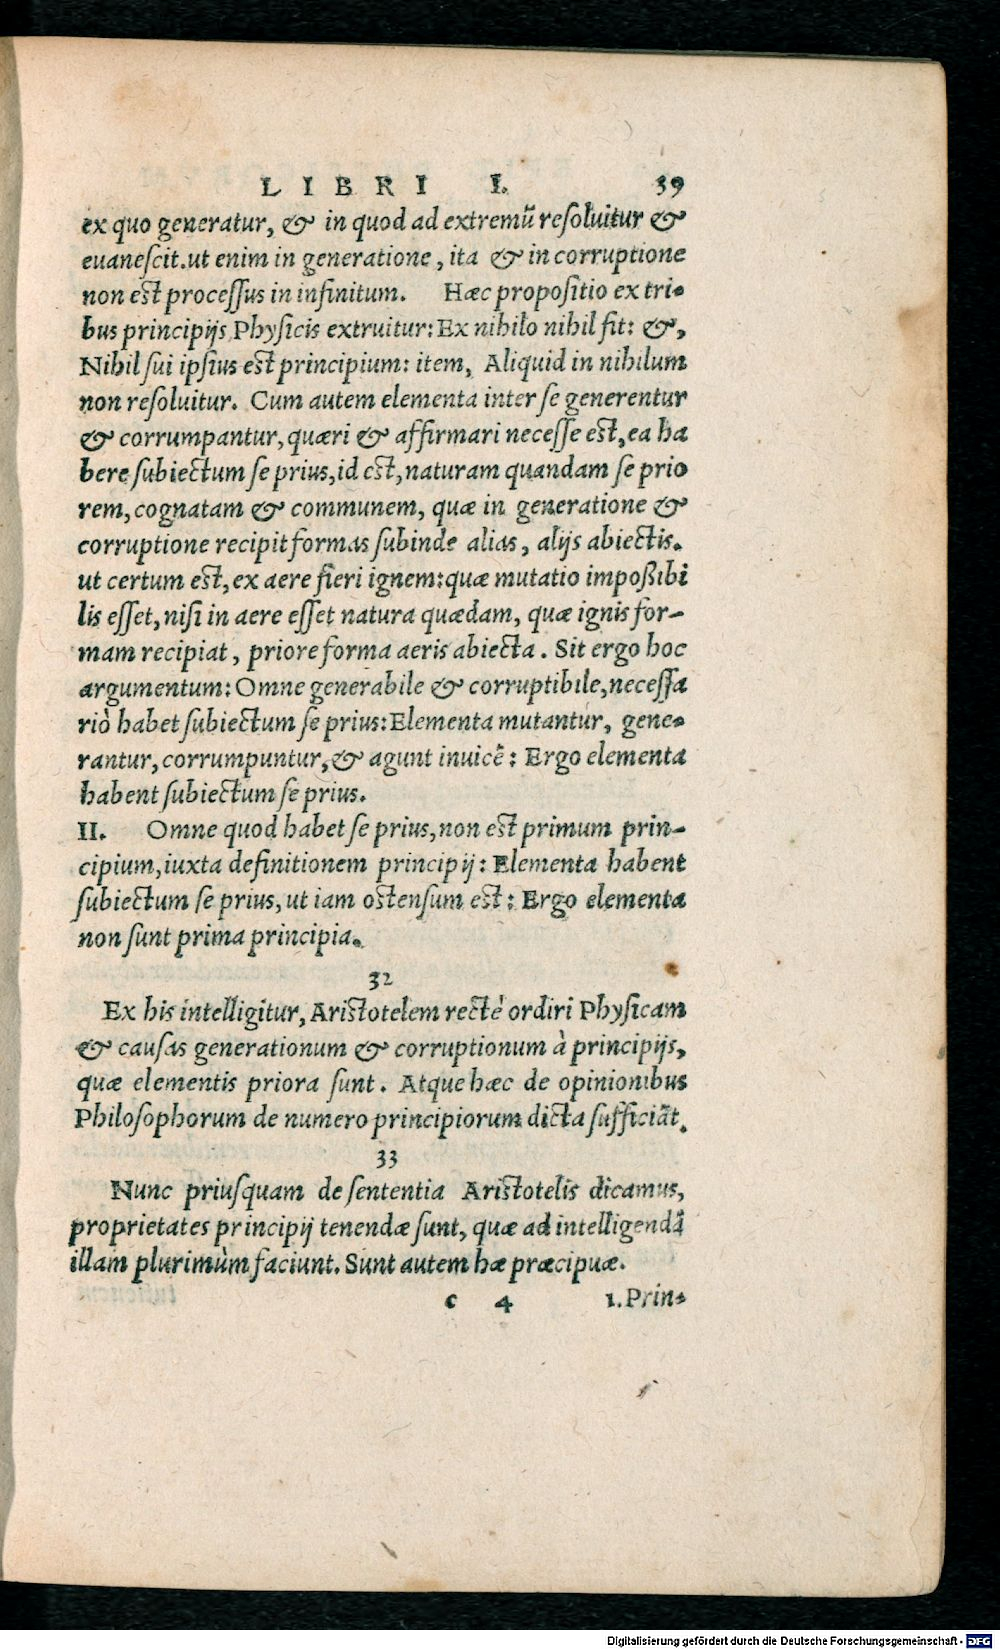 LIBRI I. 39
ex quo generatur, & in quod ad extremũ resoluitur &
euanescit. ut enim in generatione, ita & in corruptione
non est processus in infinitum. Hæc propositio ex tri-
bus principijs Physicis extruitur: Ex nihilo nihil fit: &,
Nihil sui ipsius est principium: item, Aliquid in nihilum
non resoluitur. Cum autem elementa inter se generentur
& corrumpantur, quæri & affirmari necesse est, ea ha
bere subiectum se prius, id est, naturam quandam se prio
rem, cognatam & communem, quæ in generatione &
corruptione recipit formas subinde alias, alijs abiectis.
ut certum est, ex aere fieri ignem: quæ mutatio impoßibi
lis esset, nisi in aere esset natura quædam, quæ ignis for-
mam recipiat, priore forma aeris abiecta. Sit ergo hoc
argumentum: Omne generabile & corruptibile, necessa
riò habet subiectum se prius: Elementa mutantur, gene-
rantur, corrumpuntur, & agunt inuicẽ: Ergo elementa
habent subiectum se prius.
II. Omne quod habet se prius, non est primum prin-
cipium, iuxta definitionem principij: Elementa habent
subiectum se prius, ut iam ostensum est: Ergo elementa
non sunt prima principia.
32
Ex his intelligitur, Aristotelem rectè ordiri Physicam
& causas generationum & corruptionum à principijs,
quæ elementis priora sunt. Atque hæc de opinionibus
Philosophorum de numero principiorum dicta sufficiãt.
33
Nunc priusquam de sententia Aristotelis dicamus,
proprietates principij tenendæ sunt, quæ ad intelligendã
illam plurimùm faciunt. Sunt autem hæ præcipuæ.
c 4 1. Prin-
Digitalisierung gefördert durch die Deutsche Forschungsgemeinschaft - DFG